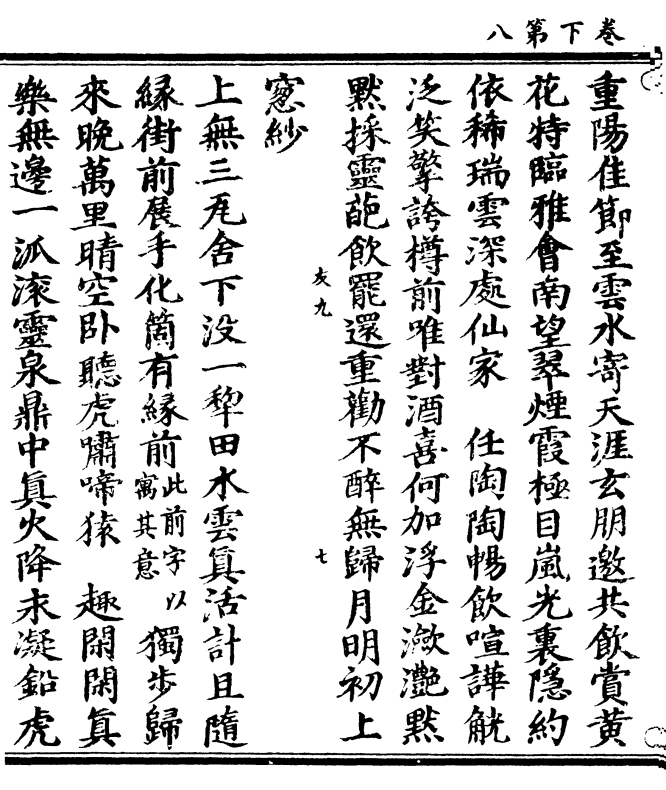 卷下第八
重陽佳節至雲水寄天涯玄朋邀共飲賞黄
花特臨雅會南望翠煙霞極目嵐光裏隱約
依稀瑞雲深處仙家　任陶陶暢飲喧譁觥
泛笑擎誇樽前唯對酒喜何加浮金瀲灧黙
黙採靈葩飲罷還重勸不醉無歸月明初上
友九　七
窓紗
上無三瓦舍下没一犂田水雲真活計且隨
緣街前展手化箇有緣前此前字以寓其意獨步歸
來晚萬里晴空卧聽虎嘯啼猿　趣閑閑真
樂無邊一派滚靈泉鼎中真火降永凝鉛虎